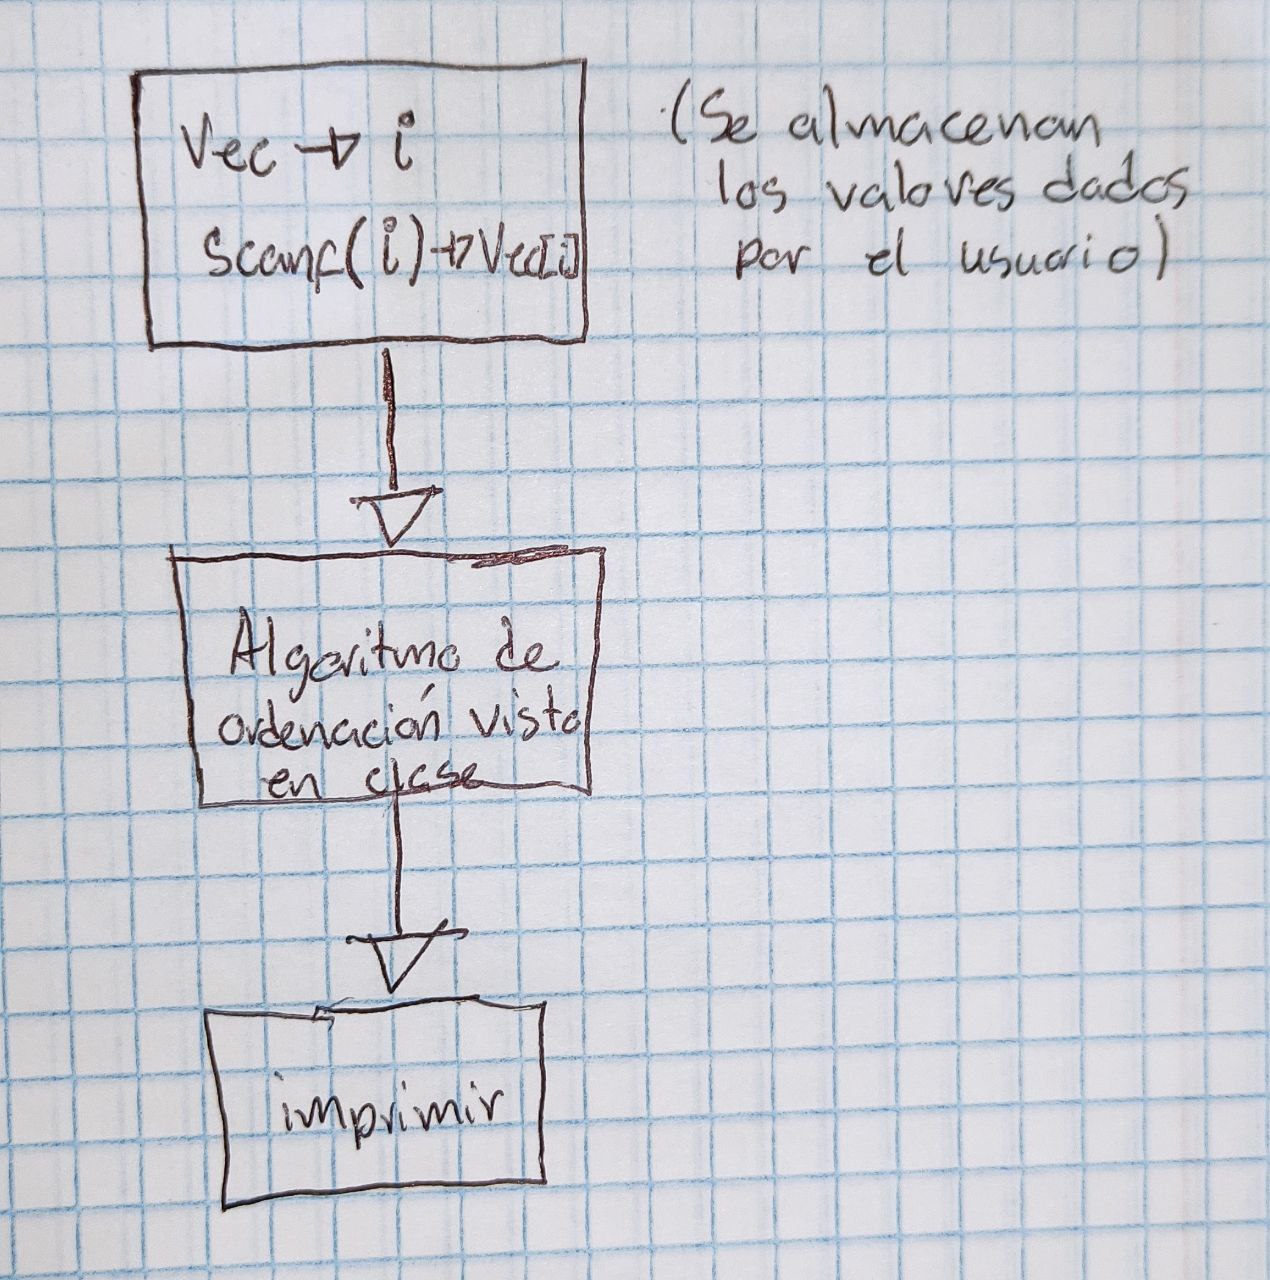 Vec → i
Scanf(i)→Vec[i]
(Se almacenan
los valores dados
por el usuario)
Algoritmo de
ordenación visto
en clase
imprimir